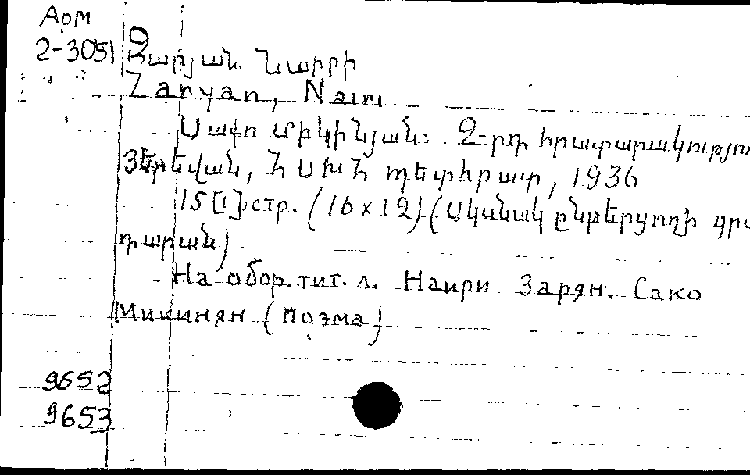 Арм
2-3051 Զարյան Նաիրի
Zaryan, Nairi
Սակո Միկինյան: 2-րդ հրատարակություն
Յերեվան, ՀՍԽՀ պետհրատ, 1936
15[1] стр. (16x12) (Սկսնակ ընթերցողի գրա
դարան)
На обор. тит. л. Наири Зарян. Сако
Микинян (поэма)
9652
9653